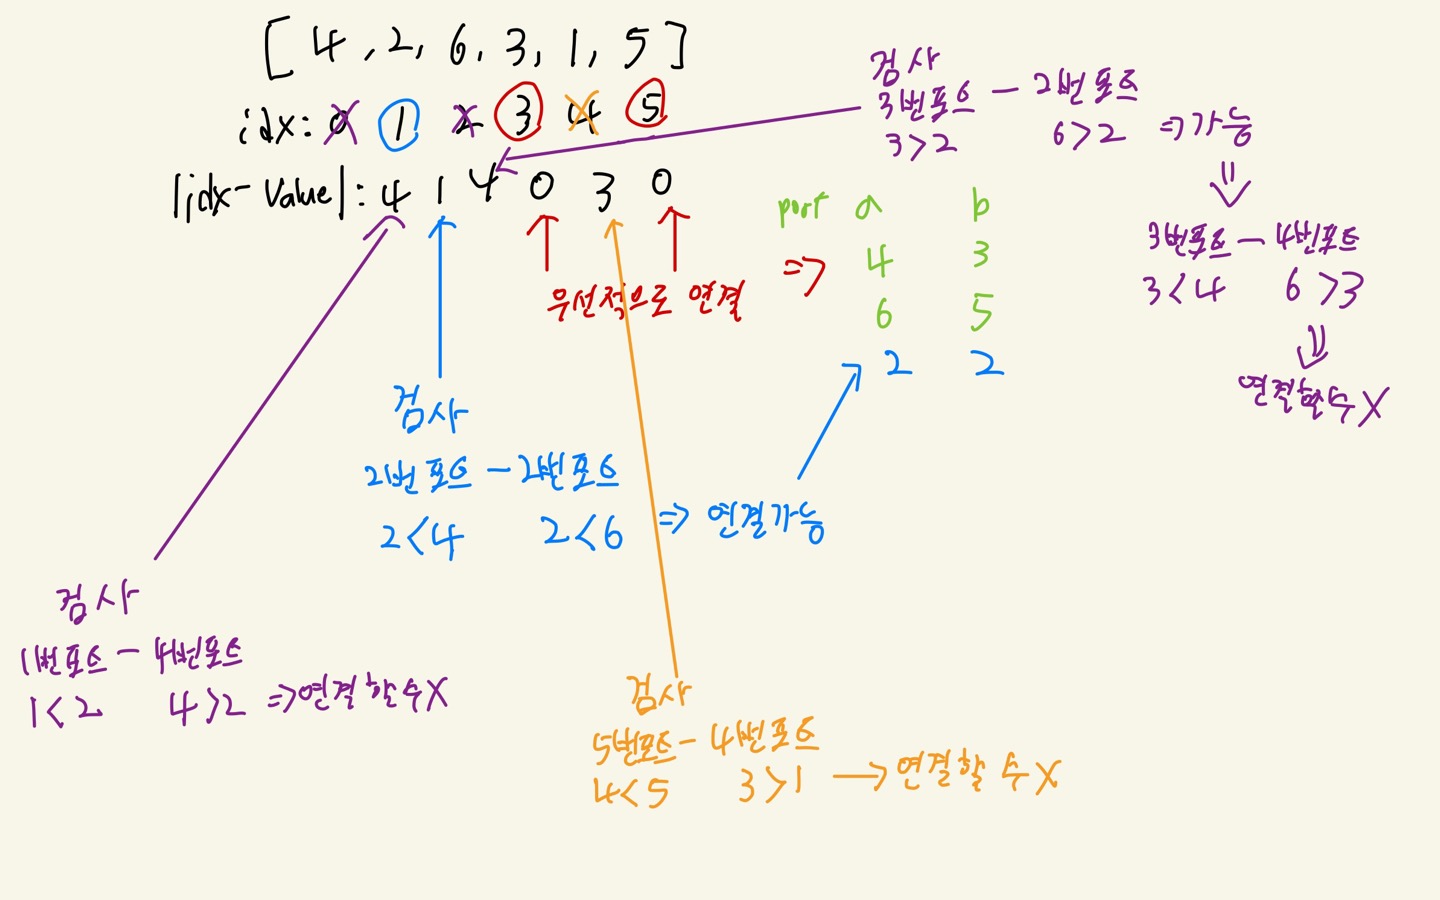 [ 4 , 2, 6, 3, 1, 5 ]
idx: 0 1 2 3 4 5
|idx-Value|: 4 1 4 0 3 0
검사
3번포트 - 2번포트
3>2 6>2 => 가능
3번포트 - 4번포트
3<4 6>3
연결할수X
port a b
=> 4 3
6 5
2 2
우선적으로 연결
검사
2번포트 - 2번포트
2<4 2<6 => 연결가능
검사
1번포트 - 4번포트
1<2 4>2 => 연결할수X
검사
5번포트 - 4번포트
4<5 3>1 → 연결할 수 X